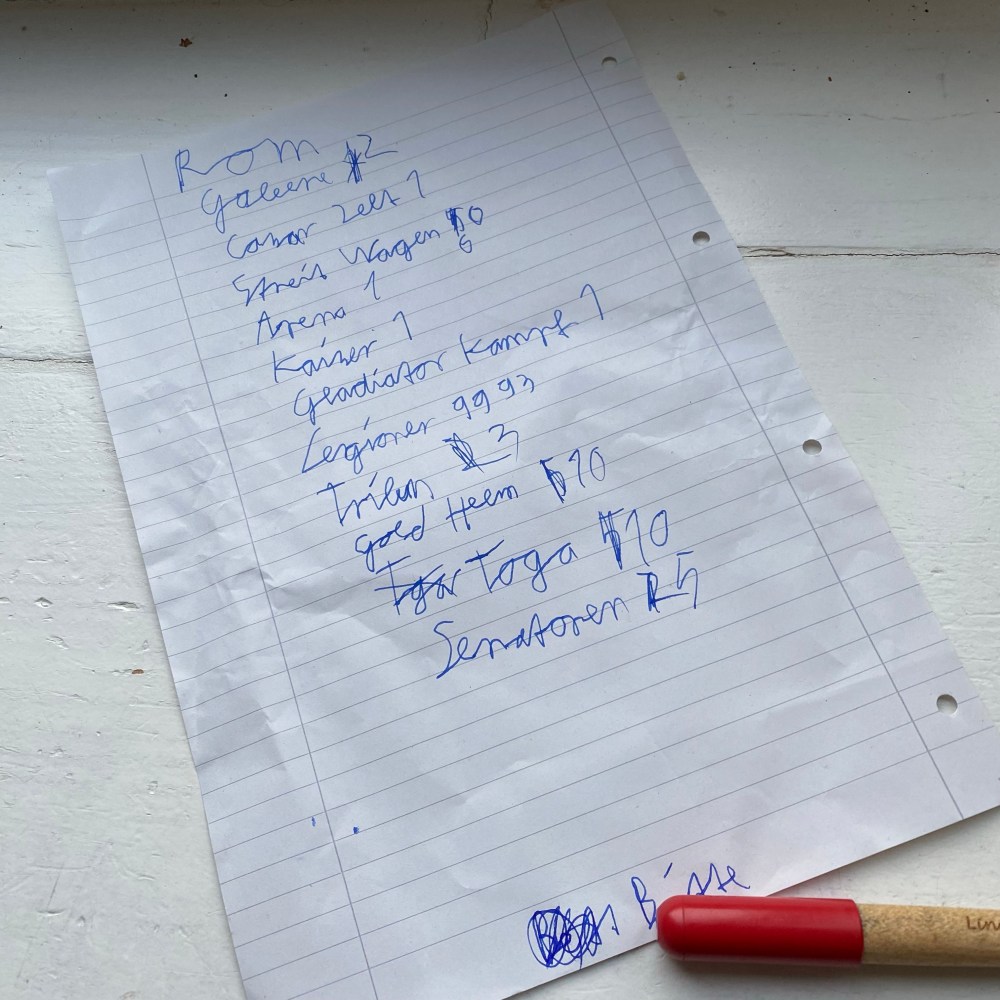 Rom
Galeere 2
Cäsar Zelt 1
Streit Wagen 10
6
Arena 1
Kaiser 1
Gladiator Kampf 1
Legioner 9993
Tribun 3
Gold Helm 10
Toga 10
Senatoren 5
Bitte
Lin